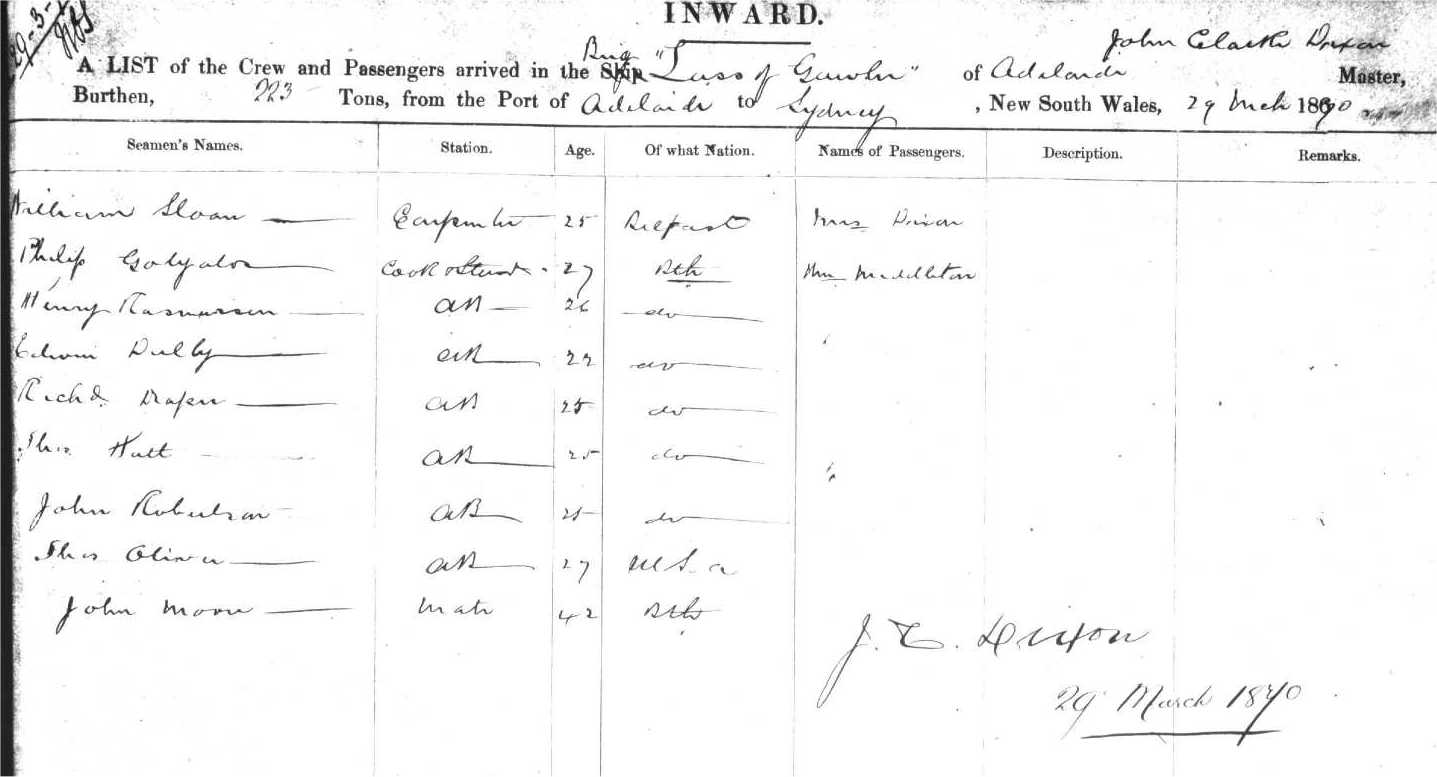 29-3-
INWARD.
John Clarke Dixon
A LIST of the Crew and Passengers arrived in the Ship Brig "Lass of Gawler" of Adelaide Master,
Burthen, 223 Tons, from the Port of Adelaide to Sydney, New South Wales, 29 Mch 1870
Seamen's Names. Station. Age. Of what Nation. Names of Passengers. Description. Remarks.
William Sloan Carpenter 25 Belfast Mrs Dixon
Philip Cook & Stewd 27 Bth Middleton
Henry Rasmussen AB 26 do
Edwin AB 22 do
Richd Draper AB 25 do
Thos AB 25 do
John Robertson AB 25 do
Thos Oliver AB 27 U S a
John Moore Mate 42 Bth
J. C. Dixon
29 March 1870